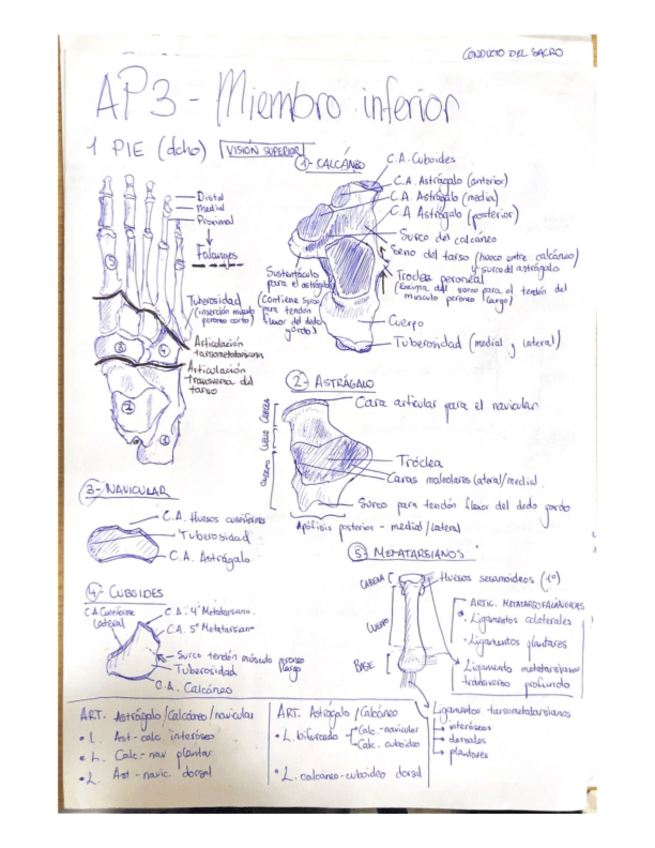 CONDUCTO DEL SACRO
AP3 - Miembro inferior
1 PIE (dcho) VISIÓN SUPERIOR
Distal
Medial
Proximal
Falanges
Tuberosidad
(inserción músculo
peroneo corto)
Articulación
tarsometatarsiana
Articulación
transversa del
tarso
5
3
4
2
1
1 - CALCÁNEO
C.A. Cuboides
C.A. Astrágalo (anterior)
C.A. Astrágalo (media)
C.A Astrágalo (posterior)
Surco del calcáneo
Seno del tarso (hueco entre calcáneo)
y surco del astrágalo
Tróclea peroneal
(Encima del surco para el tendón del
músculo peroneo largo)
Sustentáculo
para el astrágalo
(Contiene surco
para tendón
flexor del dedo
gordo)
Cuerpo
Tuberosidad (medial y lateral)
2 - ASTRÁGALO
CUERPO CUELLO CABEZA
Cara articular para el navicular
Tróclea
Caras maleolares lateral/medial.
Surco para tendón flexor del dedo gordo
Apófisis posterior - medial/lateral
3 - NAVICULAR
C.A. Huesos cuneiformes
Tuberosidad
C.A. Astrágalo
4 - CUBOIDES
C.A Cuneiforme
Lateral
C.A. 4º Metatarsiano.
C.A. 5º Metatarsiano
Surco tendón músculo peroneo
largo
Tuberosidad
C.A. Calcáneo
5 - METATARSIANOS
CABEZA
CUERPO
BASE
Huesos sesamoideos (1º)
ARTIC. METATARSOFALÁNGICAS
• Ligamentos colaterales
• Ligamentos plantares
Ligamento metatarsiano
transverso profundo
Ligamentos tarsometatarsianos
interóseos
dorsales
plantares
ART. Astrágalo/Calcáneo/navicular
• L. Ast-calc interóseo
• L. Calc-nav plantar
• L. Ast-navic. dorsal
ART. Astrágalo/Calcáneo
• L. bifurcado Calc.-navicular
Calc. cuboideo
• L. calcaneo-cuboideo dorsal